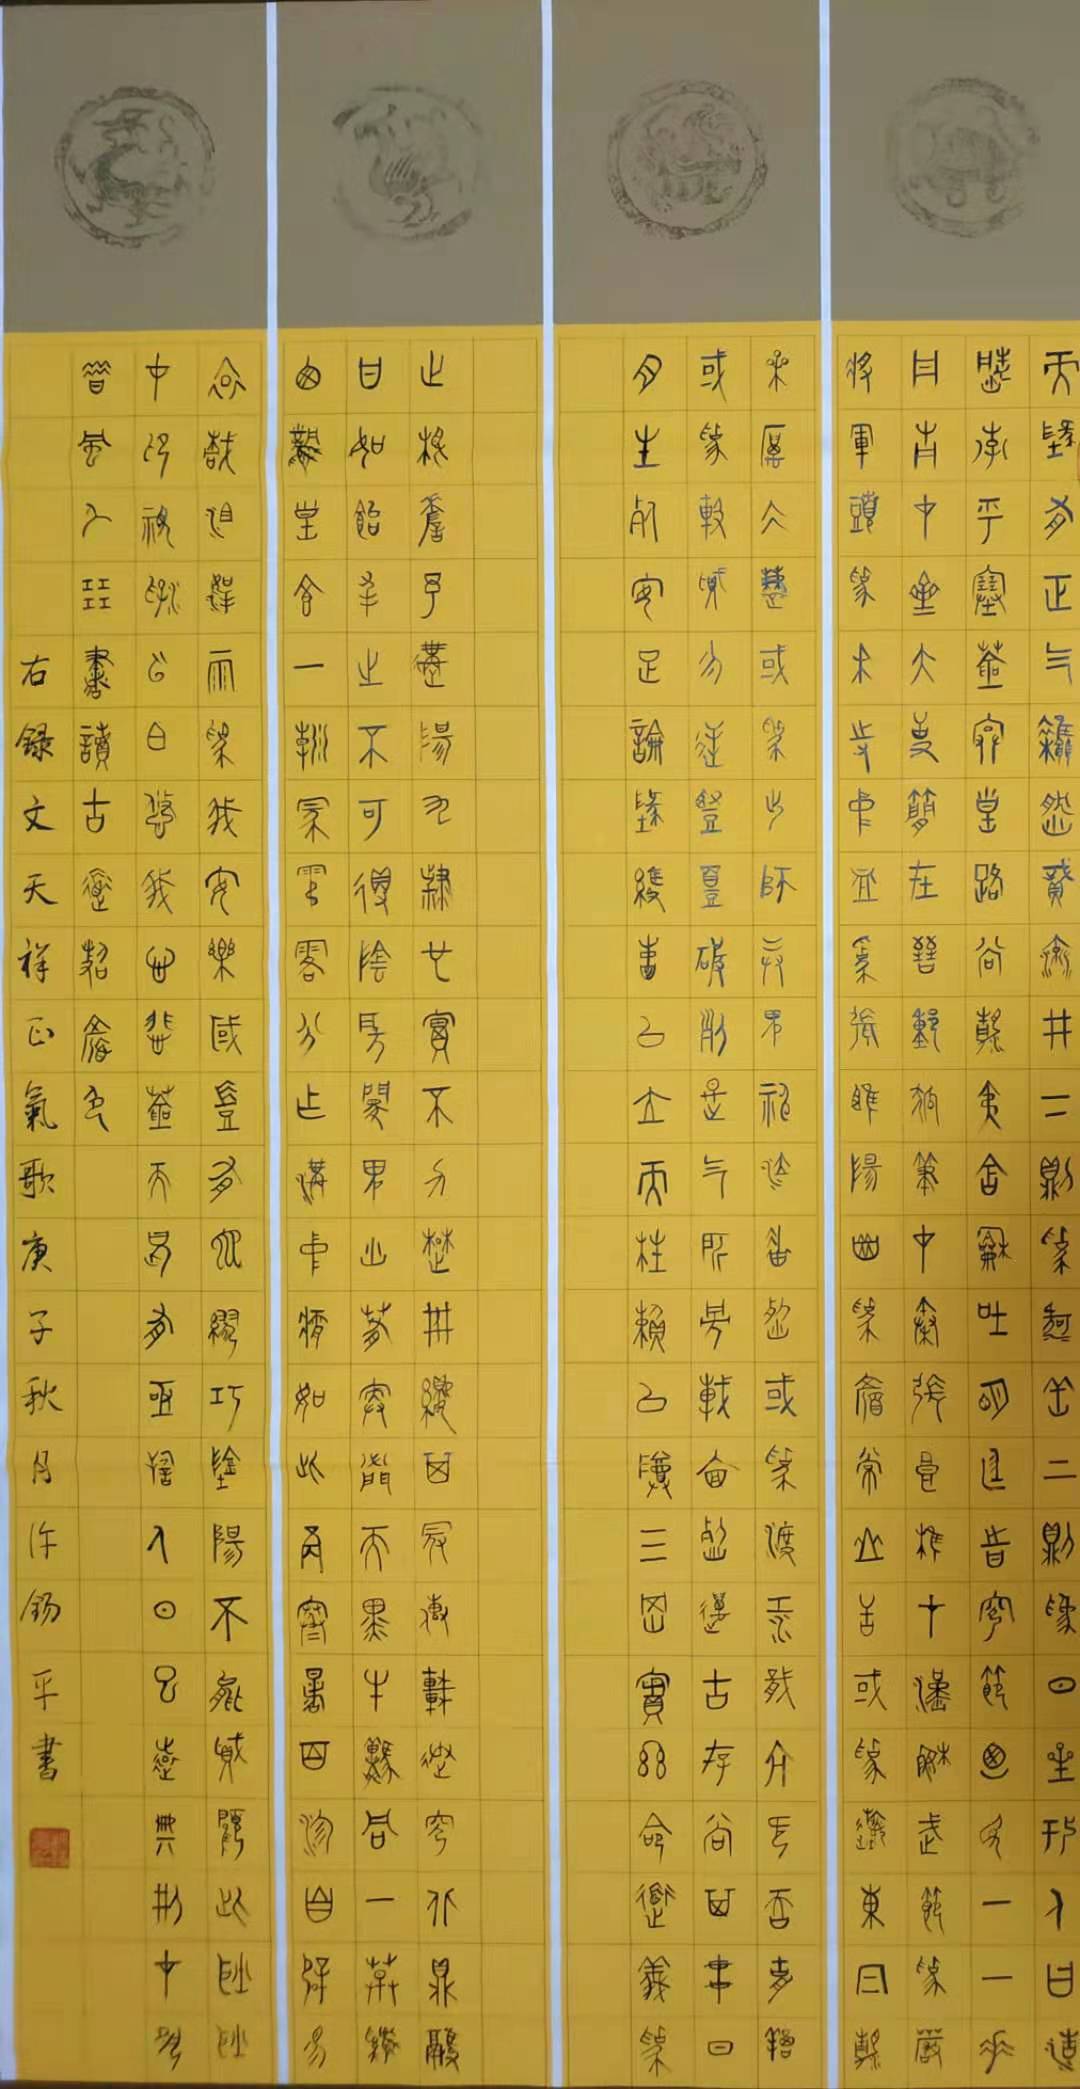 天地有正气雜然賦流形下則為河嶽上則為日星於人曰浩
然沛乎塞蒼冥皇路當清夷含和吐明庭時窮節乃見一一垂
丹青在齊太史簡在晉董狐筆在秦張良椎在漢蘇武節為嚴
將軍頭為嵇侍中血為張睢陽齒為顏常山舌或為遼東帽清
操厲冰雪或為出師表鬼神泣壯烈或為渡江楫慷慨吞胡羯
或為擊賊笏逆豎頭破裂是气所磅礴凜烈萬古存當其貫日
月生死安足論地維賴以立天柱賴以尊三綱實係命道義為
之根嗟予遘陽九隸也實不力楚囚纓其冠傳車送窮北鼎鑊
甘如飴求之不可得陰房闃鬼火春院閟天黑牛驥同一皂雞
棲鳳凰食一朝蒙霧露分作溝中瘠如此再寒暑百沴自辟易
哀哉沮洳場為我安樂國豈有他繆巧陰陽不能賊顧此耿耿
在仰視浮雲白悠我心悲蒼天曷有極哲人日已遠典刑在夙
昔風檐展書讀古道照顏色
右錄文天祥正氣歌庚子秋月許錫平書